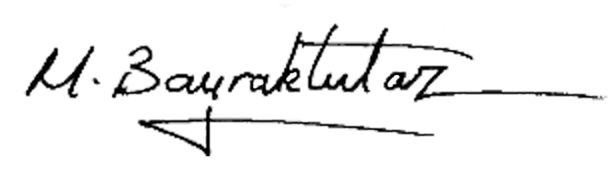 M. Bayraktutar